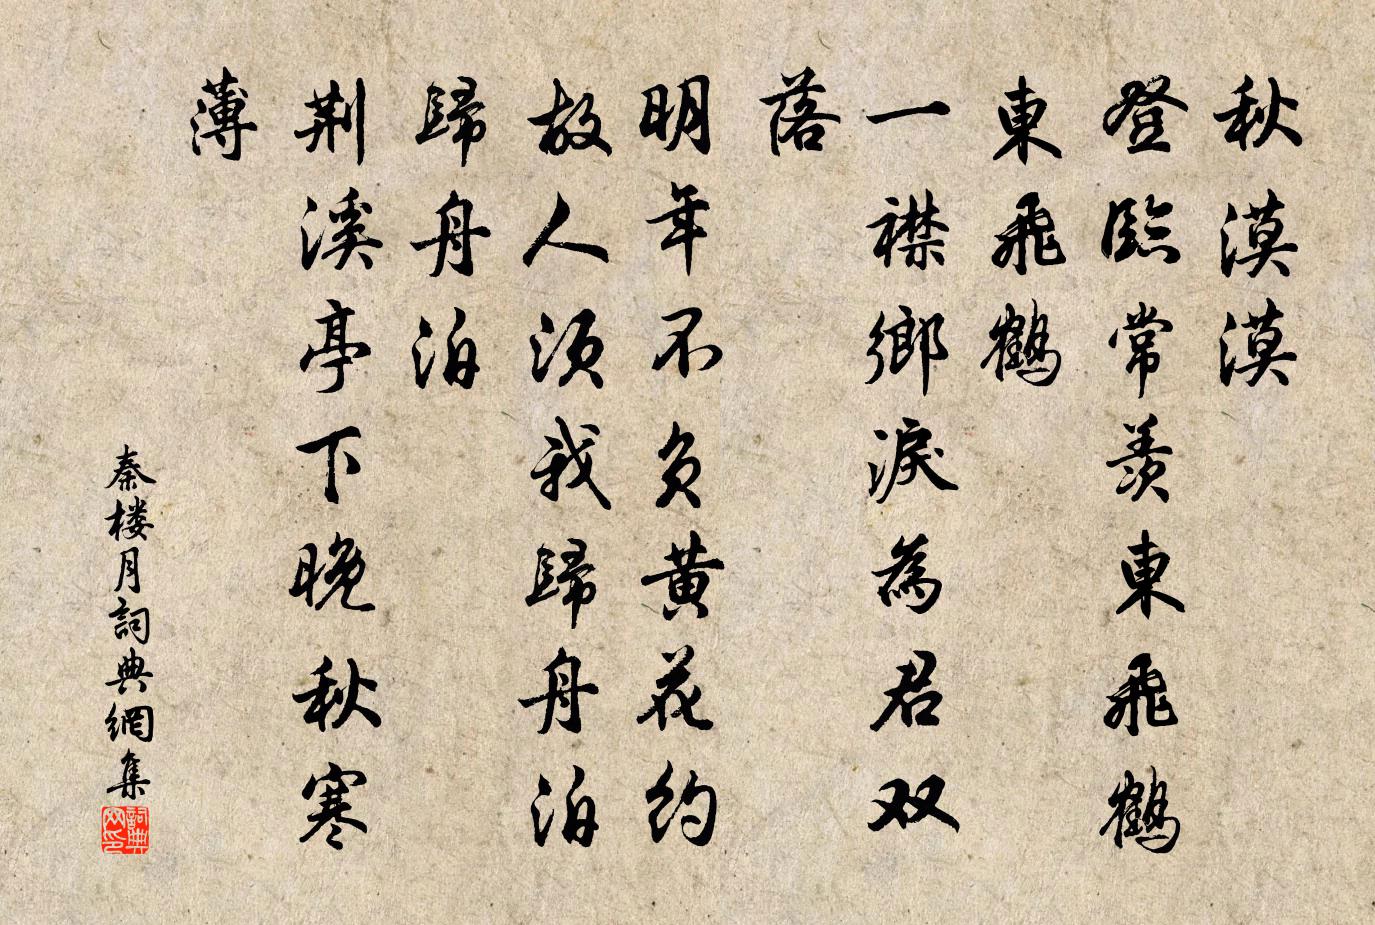 秋漠漠
登臨常羨東飛鶴
東飛鶴
一襟鄉淚為君双
落
明年不負黃花約
故人須我歸舟泊
歸舟泊
荆溪亭下晚秋寒
薄
秦楼月詞典網集
詞典
网印